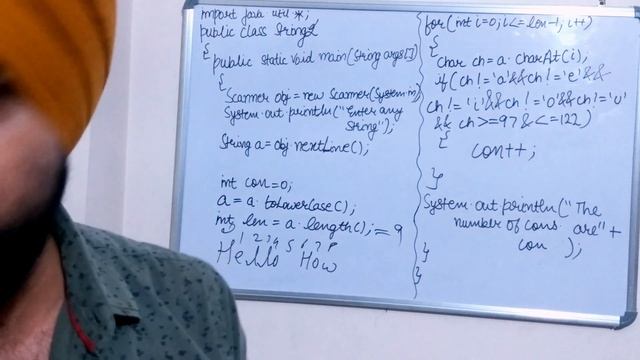 import java util.*;
public class String2
{
public static void main(String args[])
{
Scanner obj = new Scanner(System.in)
System.out.println("Enter any
String");
String a=obj.nextLine();
int con=0;
a = a.toLowerCase();
int len = a.length(); = 9
1 2 3 4 5 6 7 8
Hello How
for(int i=0; i<=len-1; i++)
{
char ch=a.charAt(i);
if(ch!='a'&&ch!='e'&&
ch!='i'&&ch!='o'&&ch!='u'
&& ch>=97 & <=122)
{
con++;
}
System.out.println("The
number of cons. are" +
con );
}
}